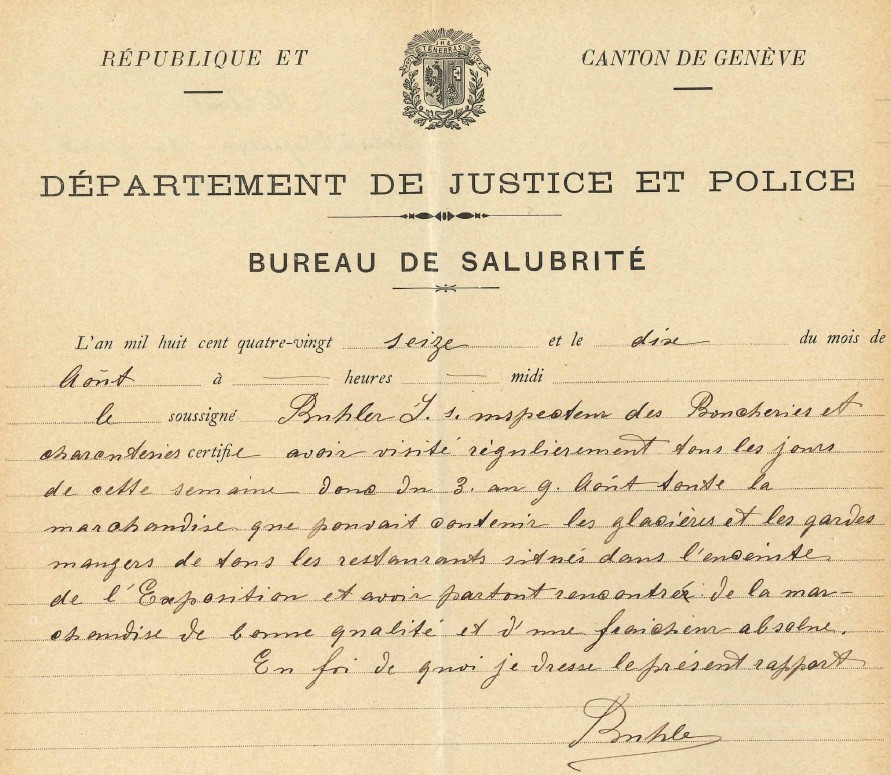 RÉPUBLIQUE ET CANTON DE GENÈVE
TENEBRAS
DÉPARTEMENT DE JUSTICE ET POLICE
BUREAU DE SALUBRITÉ
L'an mil huit cent quatre-vingt seize et le dix du mois de
Août à — heures — midi
le soussigné Buhler J. s. inspecteur des Boucheries et
charcuteries certifie avoir visité régulierement tous les jours
de cette semaine donc du 3. au 9. Août toute la
marchandise que pouvait contenir les glacières et les gardes
mangers de tous les restaurants situés dans l'enceinte
de l'Exposition et avoir partout rencontré de la mar-
chandise de bonne qualité et d'une fraicheur absolue.
En foi de quoi je dresse le présent rapport
Buhler